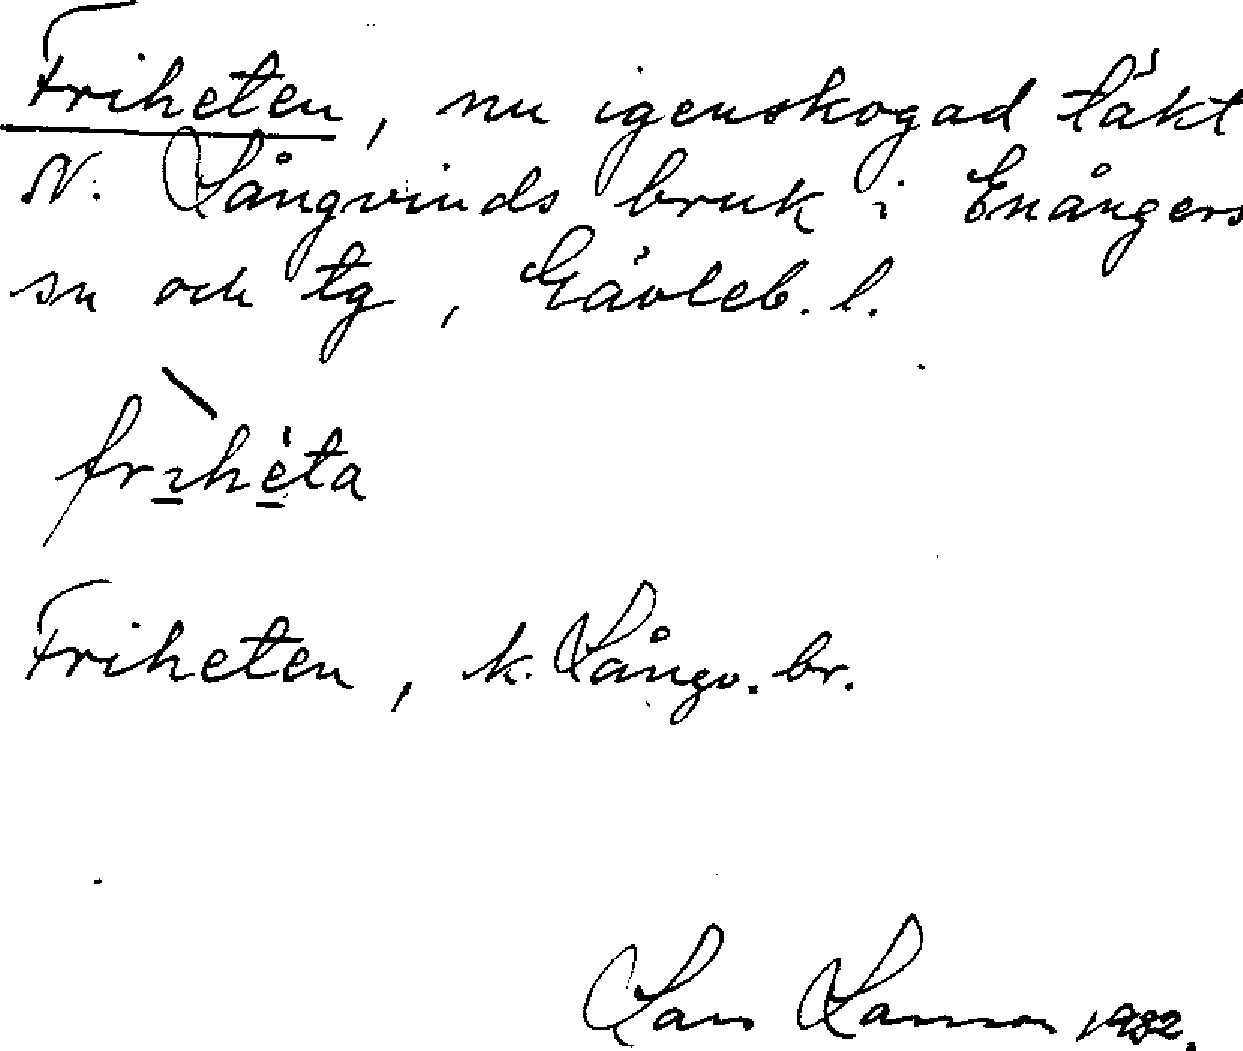 Friheten, nu igenskogad täkt
N. Långvinds bruk i Enångers
sn och tg, Gävleb. l.
frìhéta
Friheten, k. Långv. br.
Lars Larsson 1982.